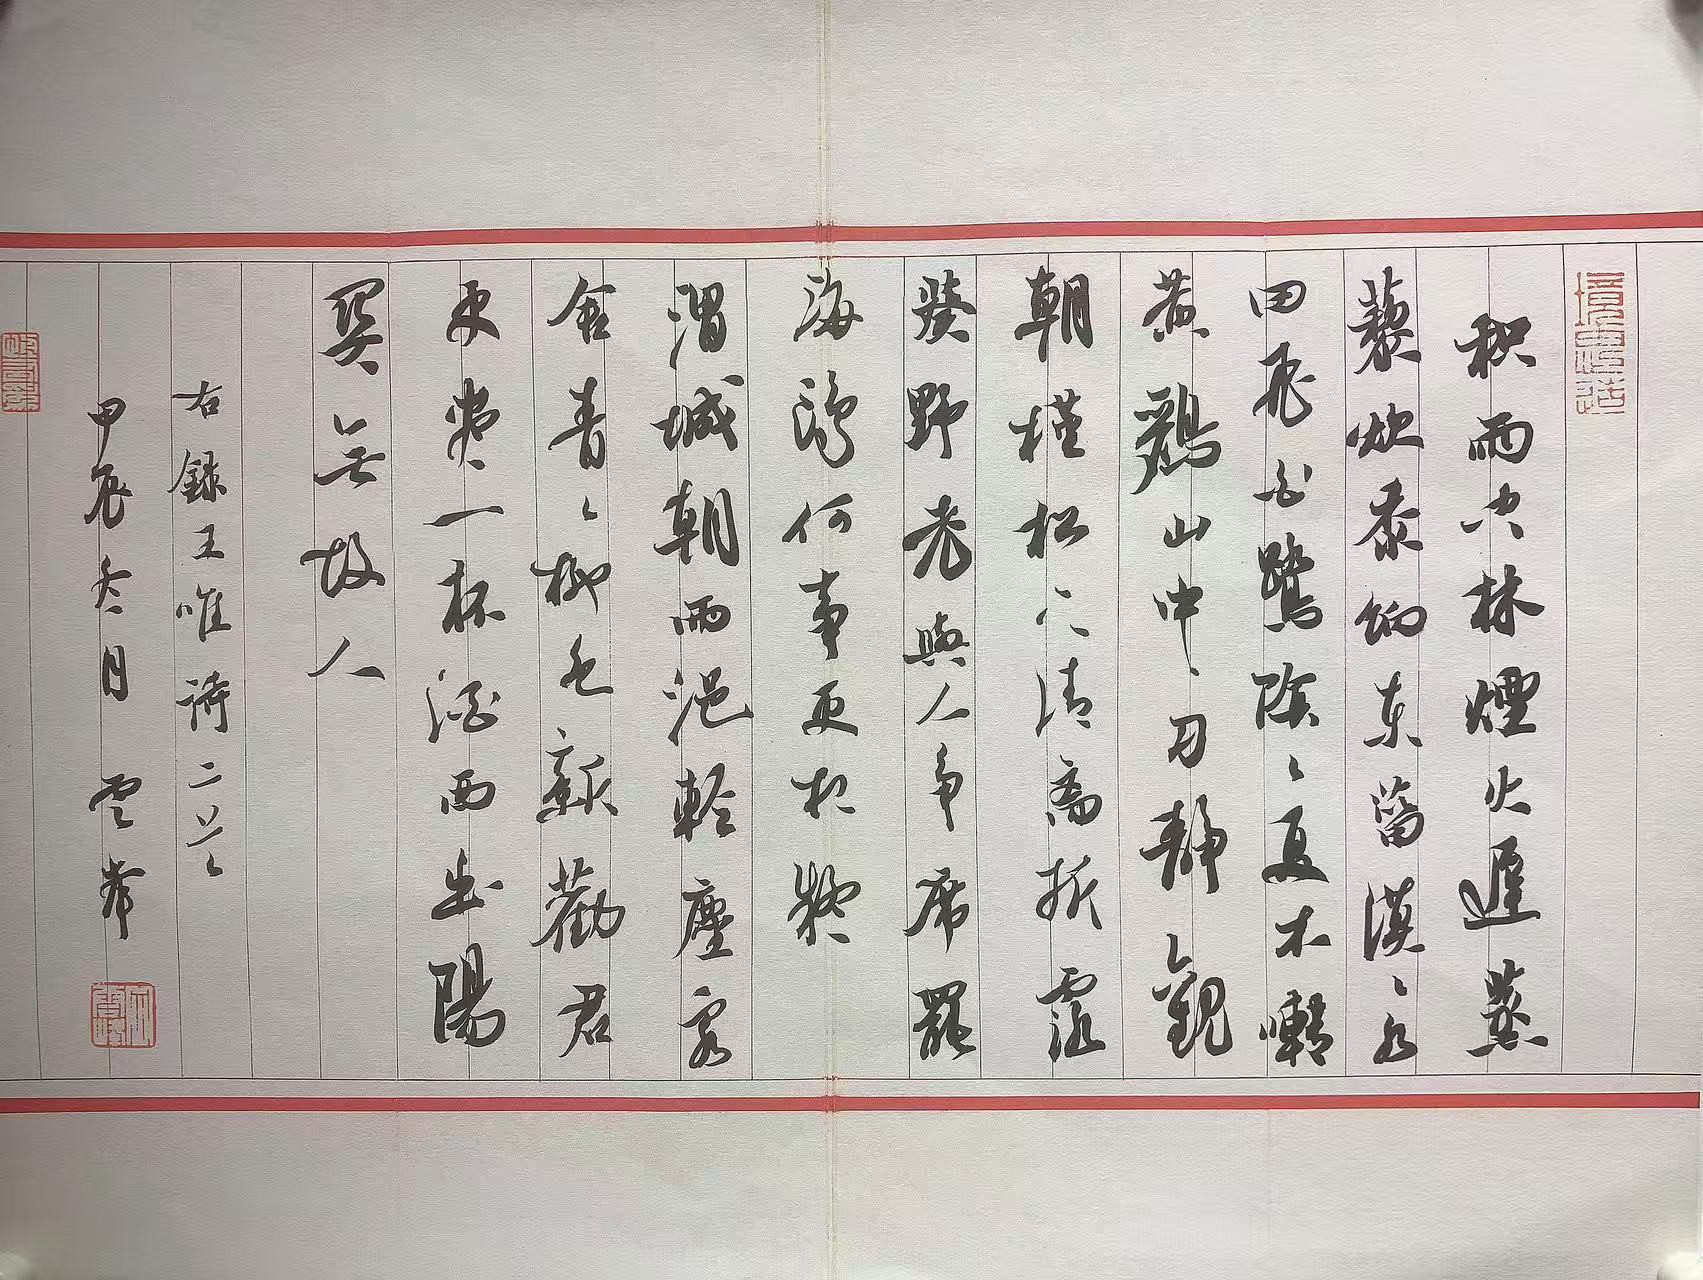 积雨空林煙火遲蒸
藜炊黍餉东菑漠〻水
田飛白鷺陰〻夏木囀
黄鸝山中習静觀
朝槿松下清齋折露
葵野老與人争席罷
海鷗何事更相疑
渭城朝雨浥輕塵客
舍青〻柳色新勸君
更盡一杯酒西出陽
関無故人
右録王唯詩二首
甲辰冬月 雲峯